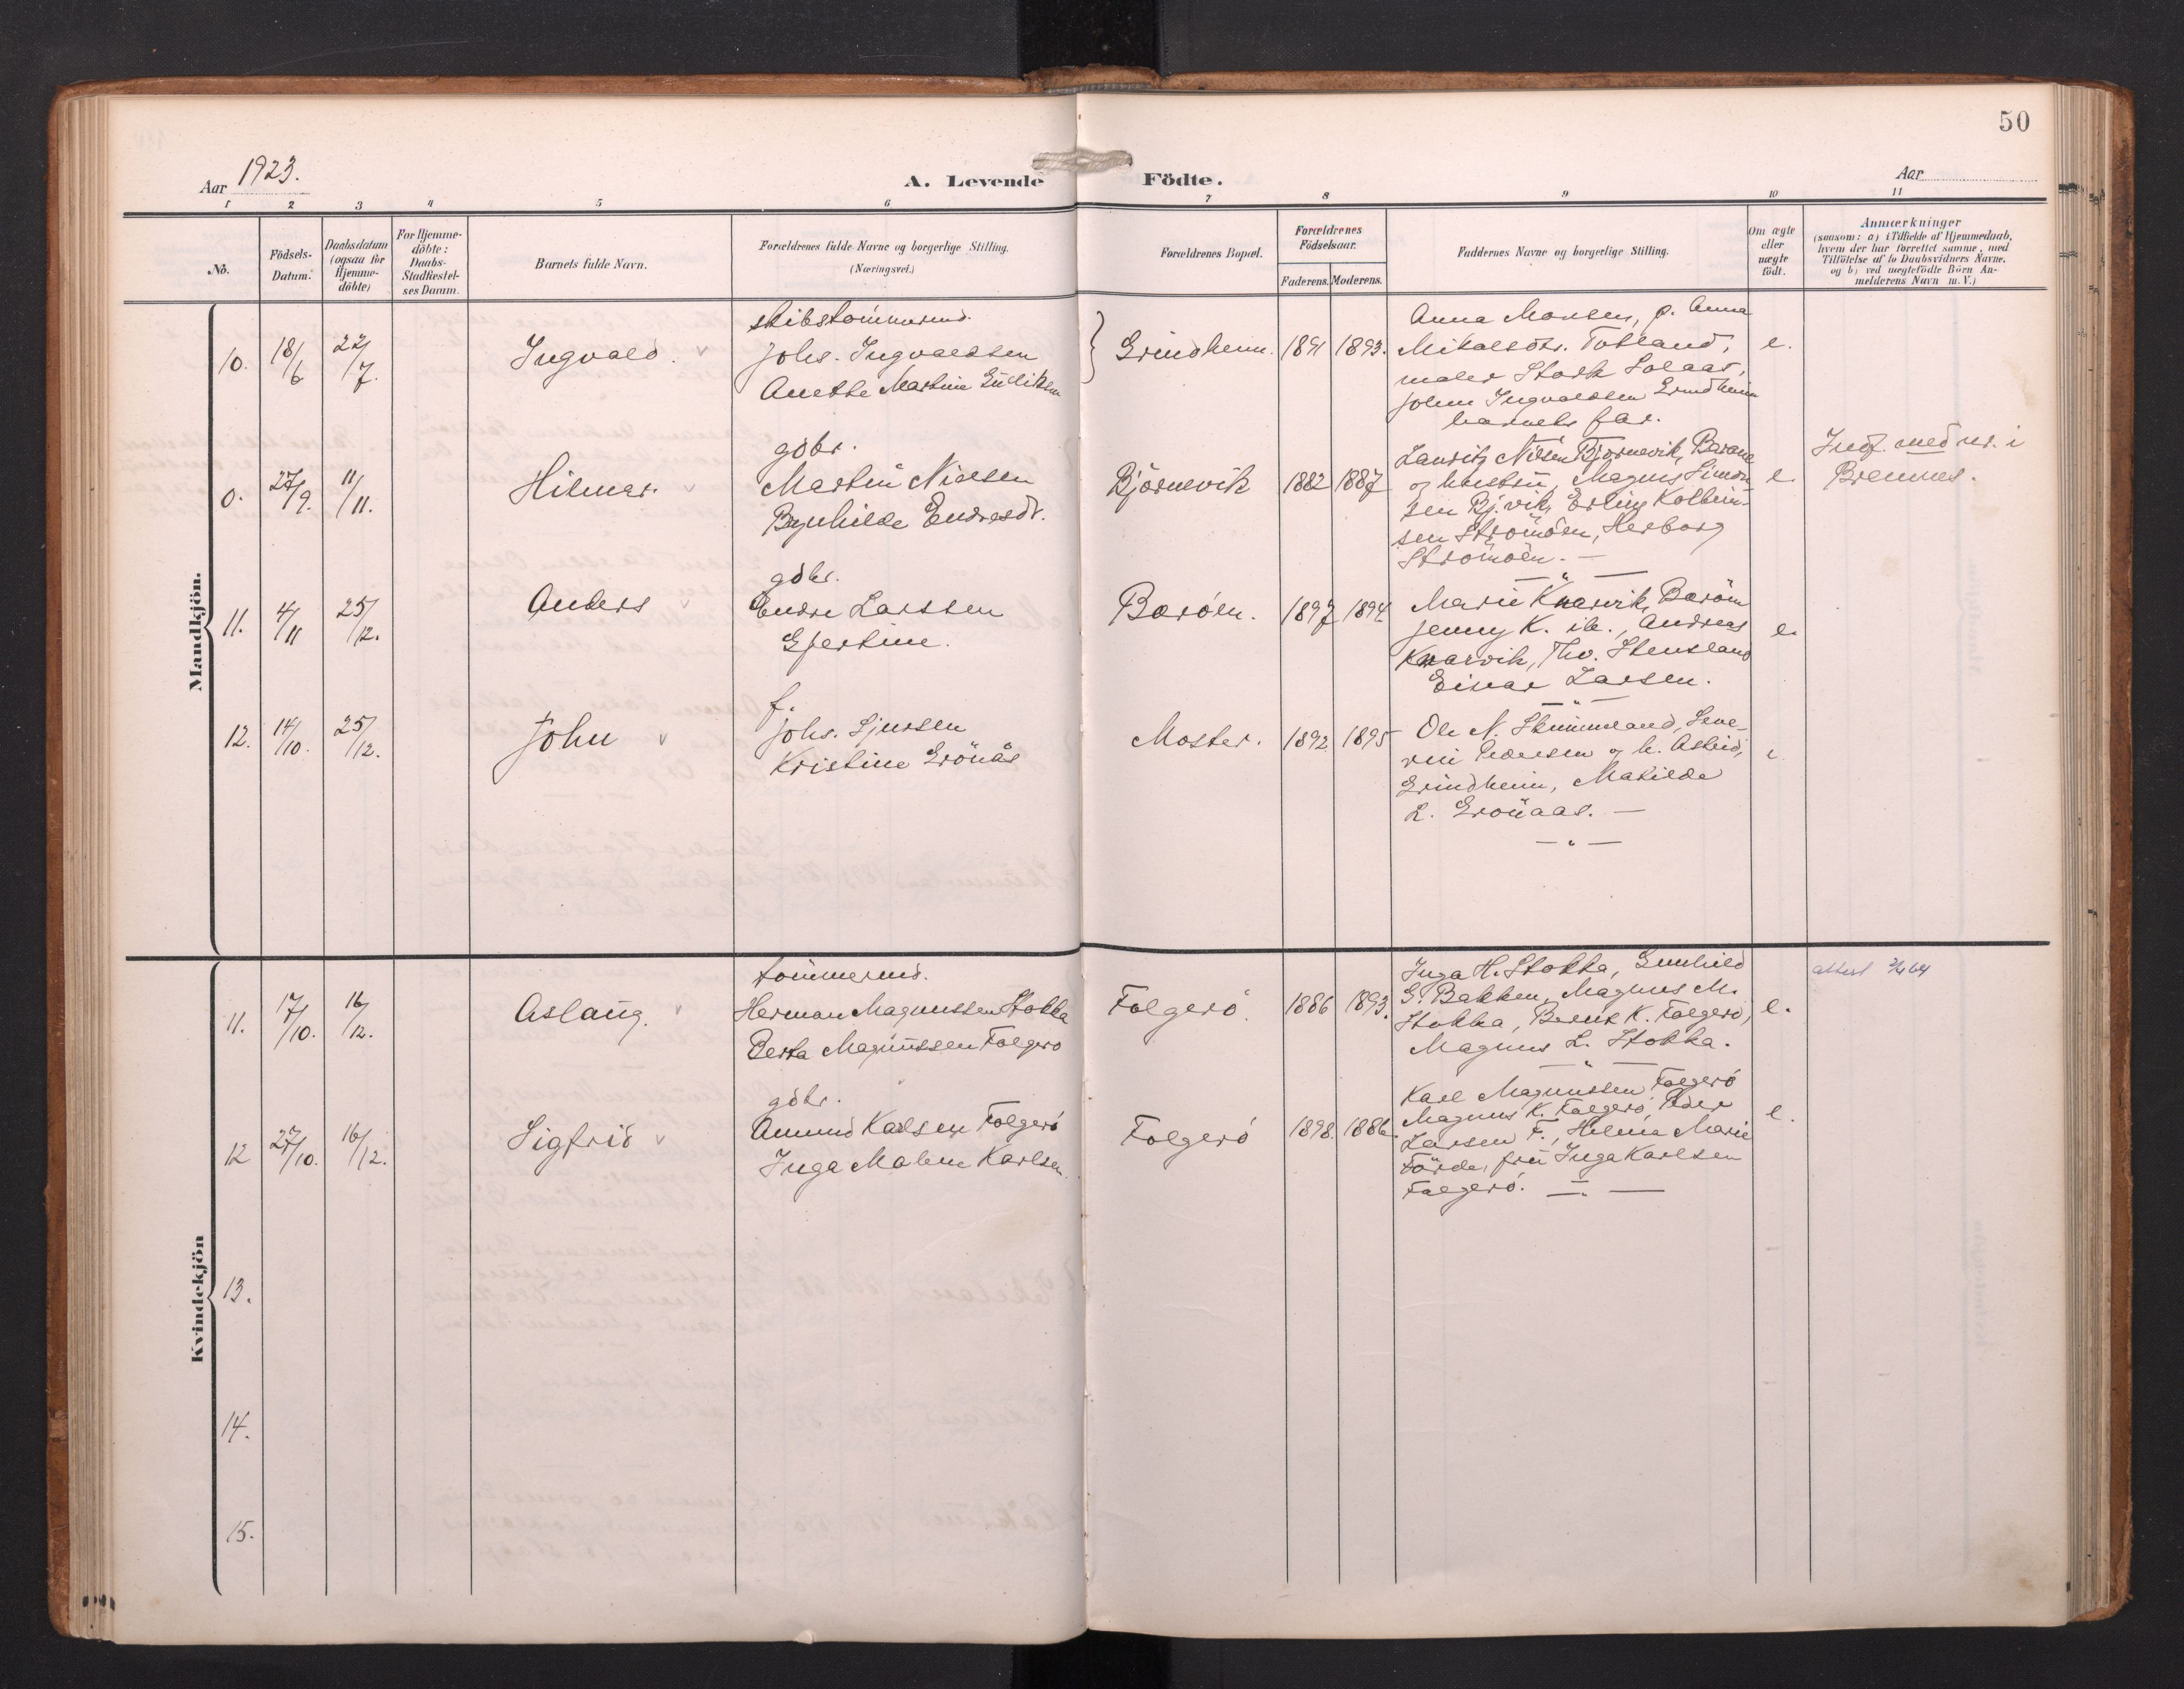 50
Aar 1923.
A. Levende Födte.
Aar
1 2 3 4 5 6 7 8 9 10 11
No.
Födsels-
Datum.
Daabsdatum
(ogsaa for
Hjemme-
döbte)
For Hjemme-
döbte:
Daabs-
Stadfæstel-
ses Datum.
Barnets fulde Navn.
Forældrenes fulde Navne og borgerlige Stilling.
(Næringsvei.)
Forældrenes Bopæl.
Forældrenes
Födselsaar.
Faderens. Moderens.
Faddernes Navne og borgerlige Stilling.
Om ægte
eller
uægte
födt.
Anmærkninger
(saasom: a) i Tilfælde af Hjemmedaab,
hvem der har forrettet samme, med
Tilföielse af to Daabsvidners Navne,
og b) ved uægtefödte Börn An-
melderens Navn m. V.)
Mandkjön.
10. 18/6 22/7. Ingvald. v
skibstømmermd.
Johs. Ingvaldsen
Anette Martine
Grindheim. 1891 1893.
Anna Monsen, p. Anna
Mikalsdtr. Totland,
maler Stork Solaas,
John Ingvaldsen Grindheim
barnets far.
e.
0. 27/9. 11/11. Hilmar. v
gbbr.
Martin Nielsen
Brynhilde Endresdr.
Björnevik 1882 1887
Lauritz Nilsen Björnevik, Barane
og hustru, Magnus Simon-
sen Bj.vik, Erling Kolbein-
sen Strömöen, Herborg
Strömöen. —
— " —
e.
Indf. med nr. i
Bremnes.
11. 4/11 25/12. Anders v
gbbr.
Endre Larssen
Gjertine.
Boröen. 1897 1894
Marie Knarvik, Boröen
Jenny K. ib., Andreas
Knarvik, Thv. Stensland
Einar Larsen.
— " —
e.
12. 14/10. 25/12. John v
f.
Johs. Sjurssen
Kristine Grönås
Moster. 1892 1895
Ole N. Stummeland, Seve-
rin Pedersen og h. Astrid,
Grindheim, Matilde
L. Grönaas. —
— " —
e
Kvindekjön
11. 17/10. 16/12. Aslaug. v
tömmermd.
Herman Magnussen Stokka
Berta Magnussen Folgerö
Folgerö. 1886 1893.
Inga H. Stokka, Gunhild
G. Bakken, Magnus M.
Stokka, Berent K. Folgerö,
Magnus L. Stokka.
— " —
e.
attest 2/4 64
12 27/10. 16/12. Sigfrid v
gbbr.
Amund Karlsen Folgerö
Inga Malene Karlsen.
Folgerö 1898. 1886.
Karl Magnussen Folgerö
Magnus K. Folgerö, Peder
Larsen F., Helma Marie
Förde, fru Inga Karlsen
Folgerö. — " —
e.
13.
14.
15.